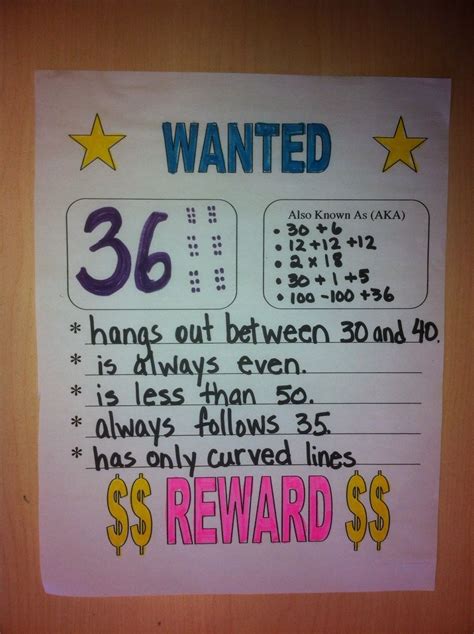 WANTED
36
Also Known As (AKA)
• 30 + 6
• 12 + 12 + 12
• 2 x 18
• 30 + 1 + 5
• 100 - 100 + 36
* hangs out between 30 and 40.
* is always even.
* is less than 50.
* always follows 35.
* has only curved lines
$$ REWARD $$